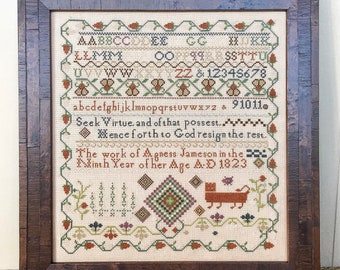 AABBCCDDEE GG HIJKK
LLMM OO SSTTU
UVVWW XXX ZZ & 12345678
abcdefghijklmnopqrstuvwxyz & 91011
Seek Virtue and of that possest
Hence forth to God resign the rest
The work of Agness Jameson in the
Ninth Year of her Age A·D 1823